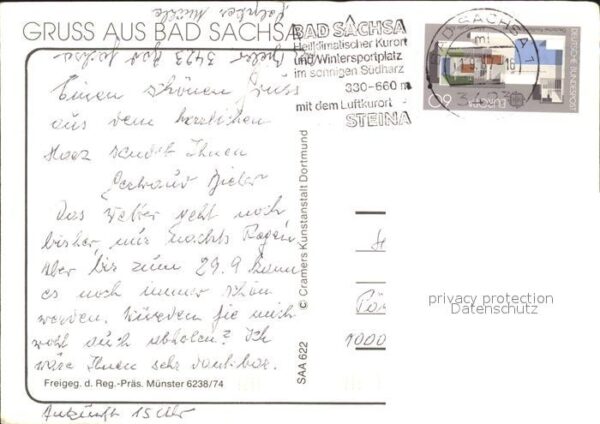 GRUSS AUS BAD SACHSA
3423 Bad Sachsa
BAD SACHSA
Heilklimatischer Kurort
und Wintersportplatz
im sonnigen Südharz
330-660 m
mit dem Luftkurort
STEINA
BAD SACHSA 1
3423
DEUTSCHE BUNDESPOST
EUROPA
60
Einen schönen Gruss
aus dem herrlichen
Harz sendet Ihnen
Das Wetter geht noch
bisher nur nachts Regen
Aber bis zum 29.9 kann
es noch immer schön
werden. Würden Sie mich
wohl auch abholen? Ich
wäre Ihnen sehr dankbar.
Ankunft 15 Uhr
Freigeg. d. Reg.-Präs. Münster 6238/74
SAA 622 © Cramers Kunstanstalt Dortmund
1000
privacy protection
Datenschutz